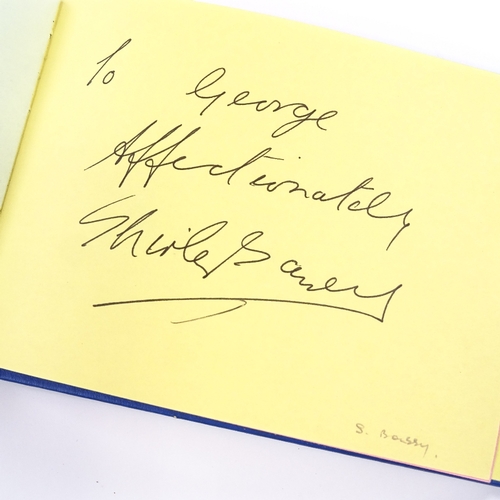 To George
Affectionately
Shirley Bassey
S. Bassy.